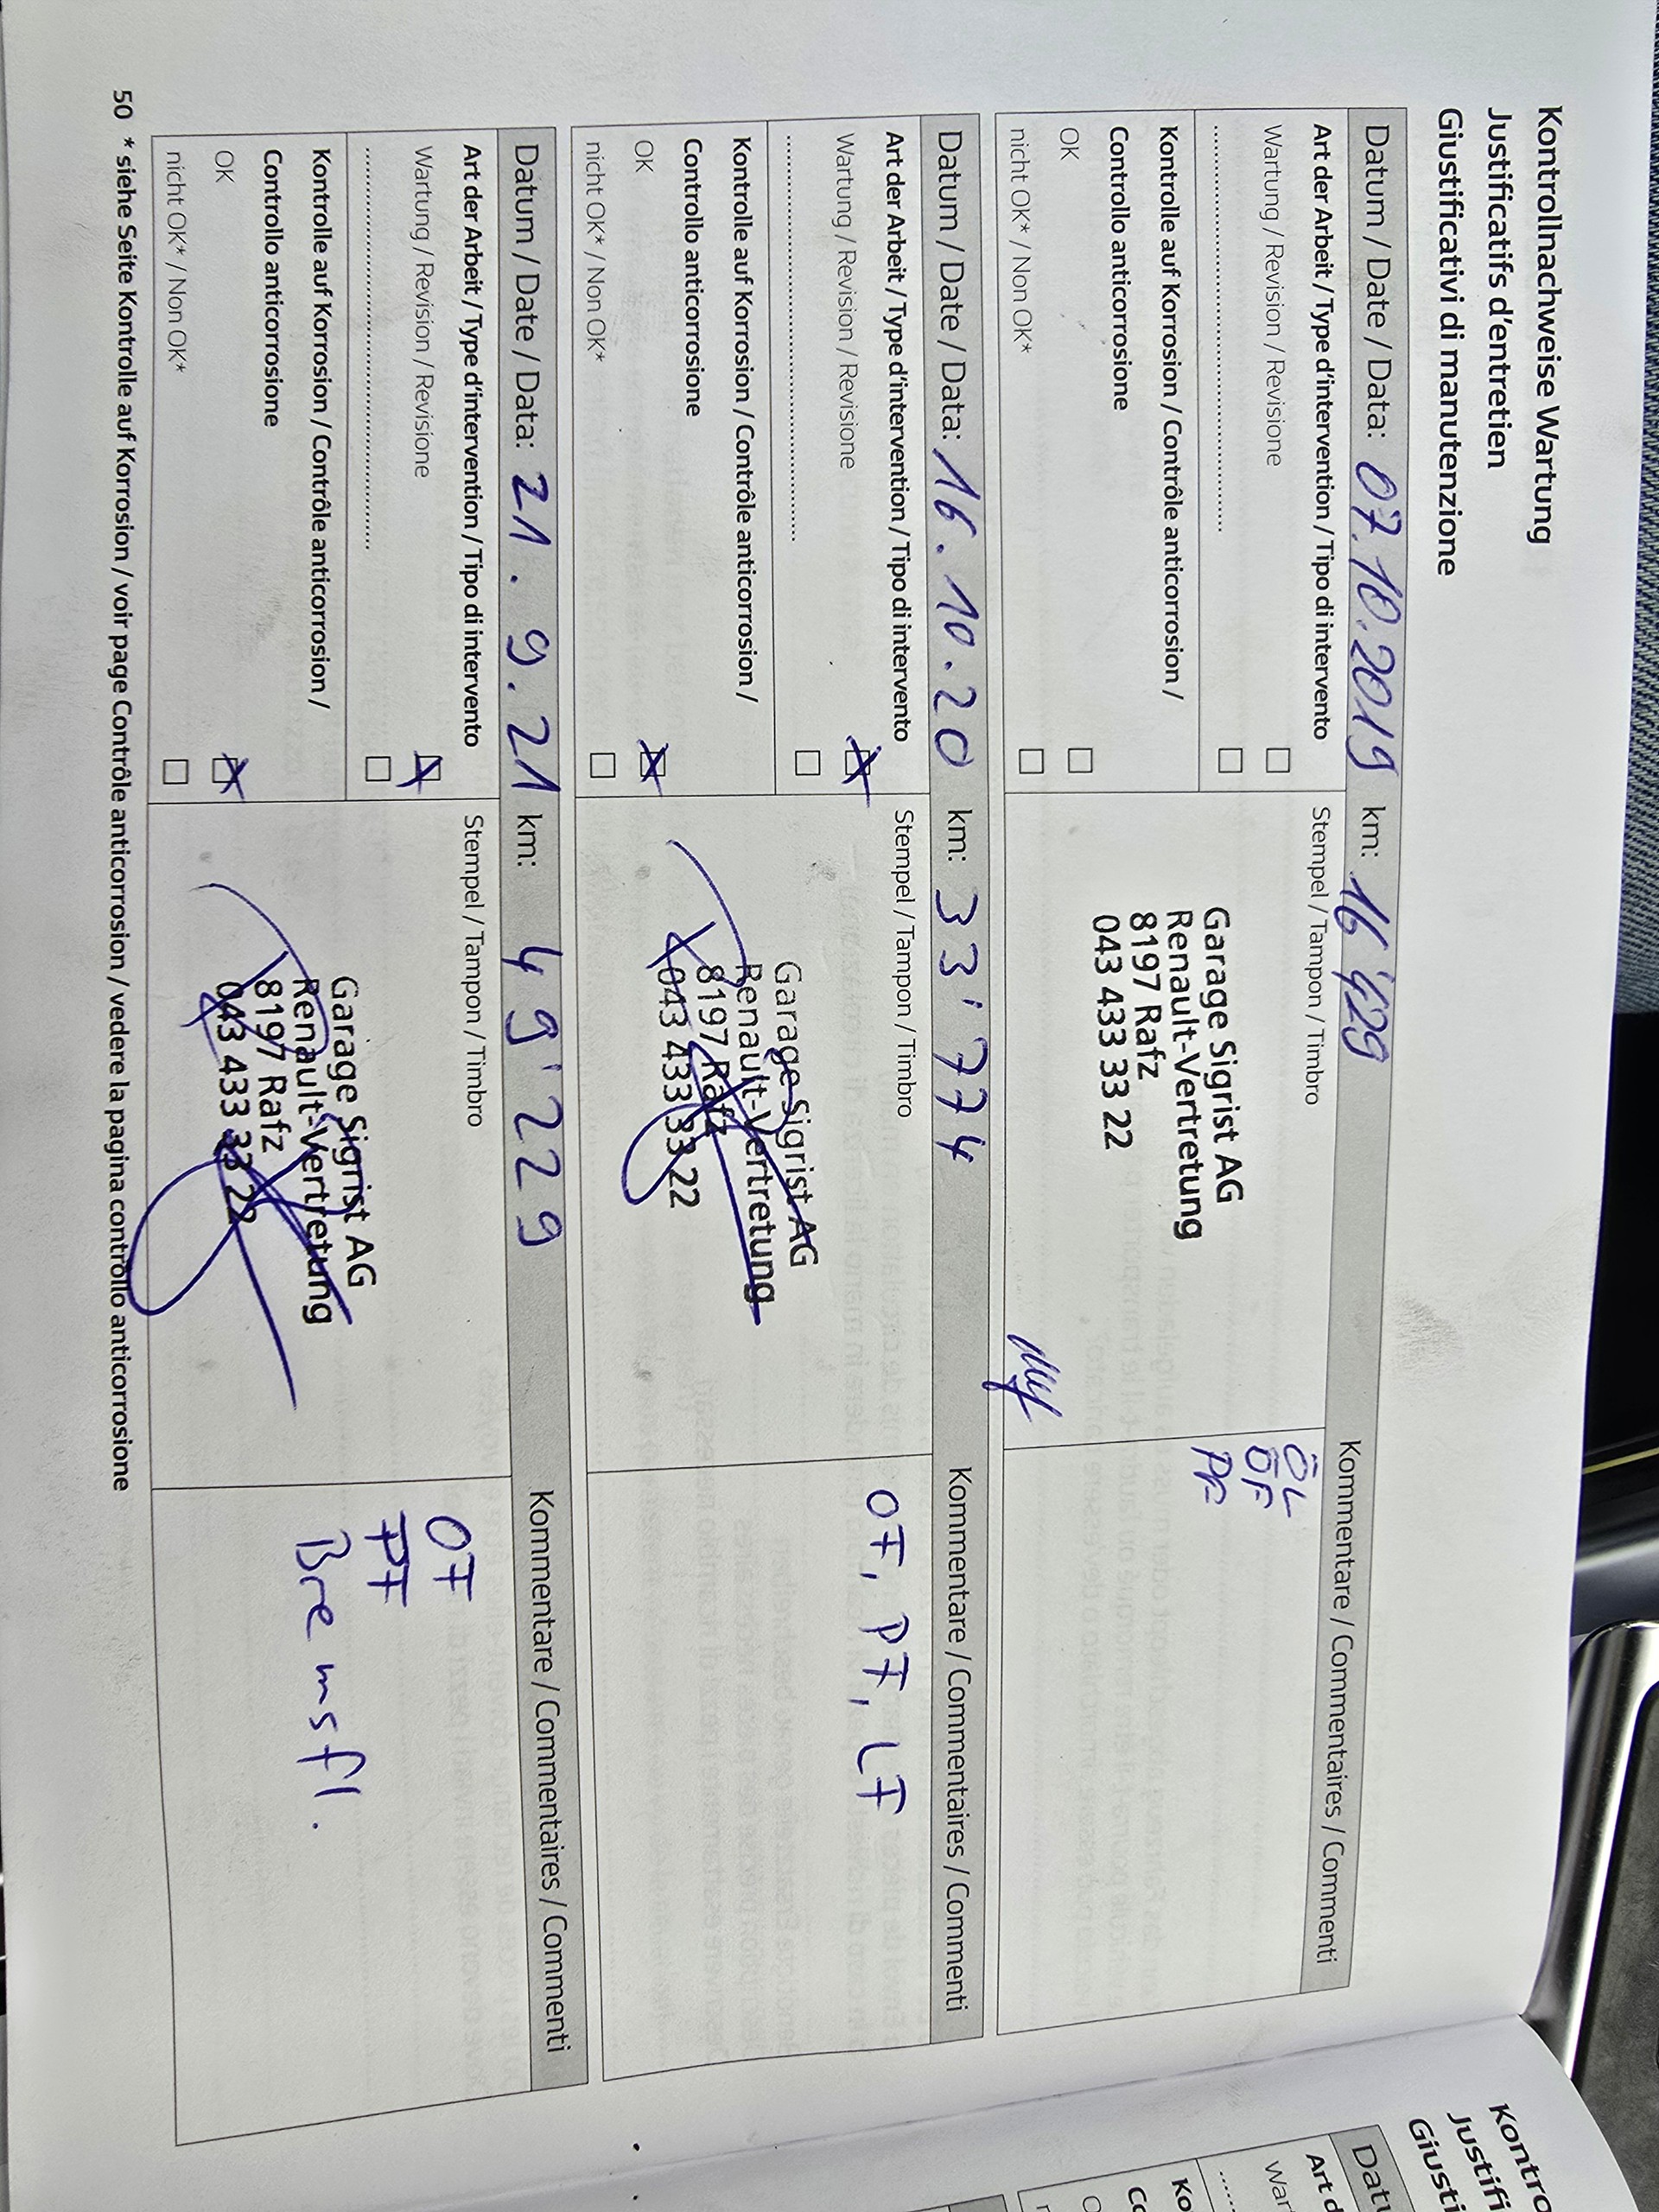 Kontrollnachweise Wartung
Justificatifs d'entretien
Giustificativi di manutenzione
Datum / Date / Data: 07.10.2019 km: 16'429 Kommentare / Commentaires / Commenti
Art der Arbeit / Type d'intervention / Tipo di intervento
Wartung / Revision / Revisione
Kontrolle auf Korrosion / Contrôle anticorrosion /
Controllo anticorrosione
OK
nicht OK* / Non OK*
Stempel / Tampon / Timbro
Garage Sigrist AG
Renault-Vertretung
8197 Rafz
043 433 33 22
ÖL
ÖF
PF
Datum / Date / Data: 16.10.20 km: 33'774 Kommentare / Commentaires / Commenti
Art der Arbeit / Type d'intervention / Tipo di intervento
Wartung / Revision / Revisione
Kontrolle auf Korrosion / Contrôle anticorrosion /
Controllo anticorrosione
OK
nicht OK* / Non OK*
Stempel / Tampon / Timbro
Garage Sigrist AG
Renault-Vertretung
8197 Rafz
043 433 33 22
OF, PF, LF
Datum / Date / Data: 21.9.21 km: 49'229 Kommentare / Commentaires / Commenti
Art der Arbeit / Type d'intervention / Tipo di intervento
Wartung / Revision / Revisione
Kontrolle auf Korrosion / Contrôle anticorrosion /
Controllo anticorrosione
OK
nicht OK* / Non OK*
Stempel / Tampon / Timbro
Garage Sigrist AG
Renault-Vertretung
8197 Rafz
043 433 33 22
OF
PF
Bremsfl.
50 * siehe Seite Kontrolle auf Korrosion / voir page Contrôle anticorrosion / vedere la pagina controllo anticorrosione